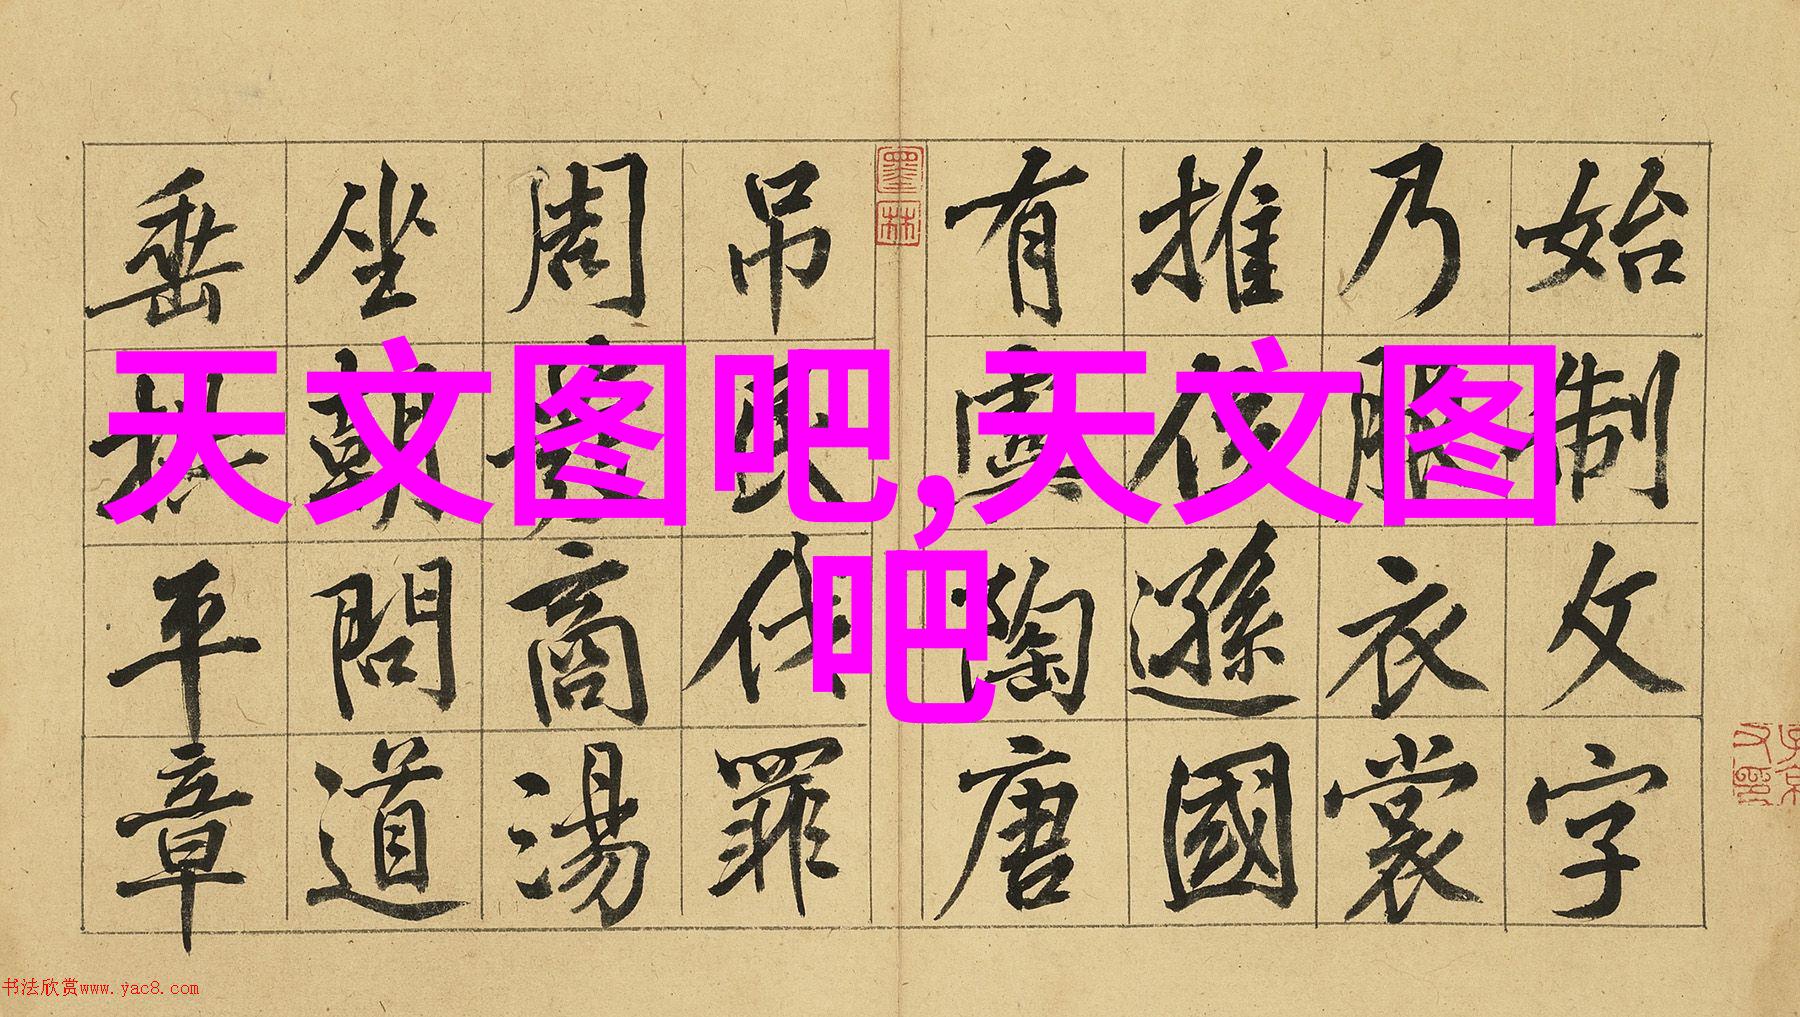 始制文字
乃服衣裳
推位遜國
有虞陶唐
吊民伐罪
周發商湯
坐朝問道
垂拱平章
墨林
天文图吧,天文图
吧
书法欣赏www.yac8.com